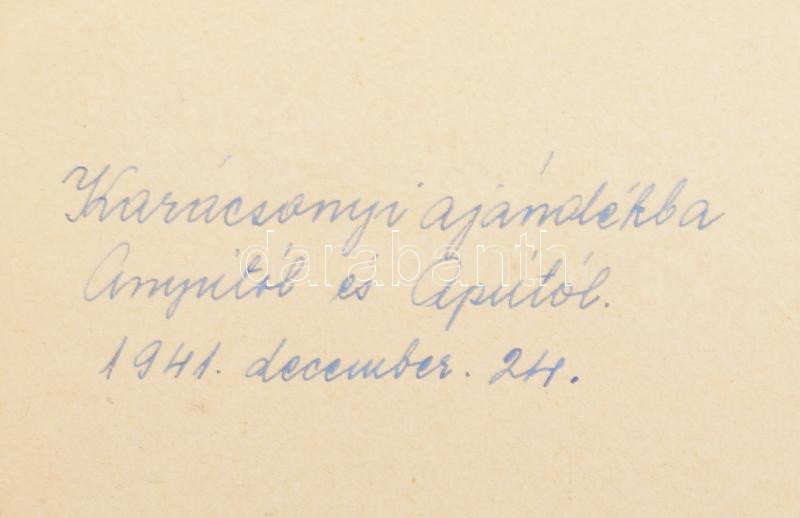 Karácsonyi ajándékba
Anyutól és Aputól.
1941. december. 24.
darabanth